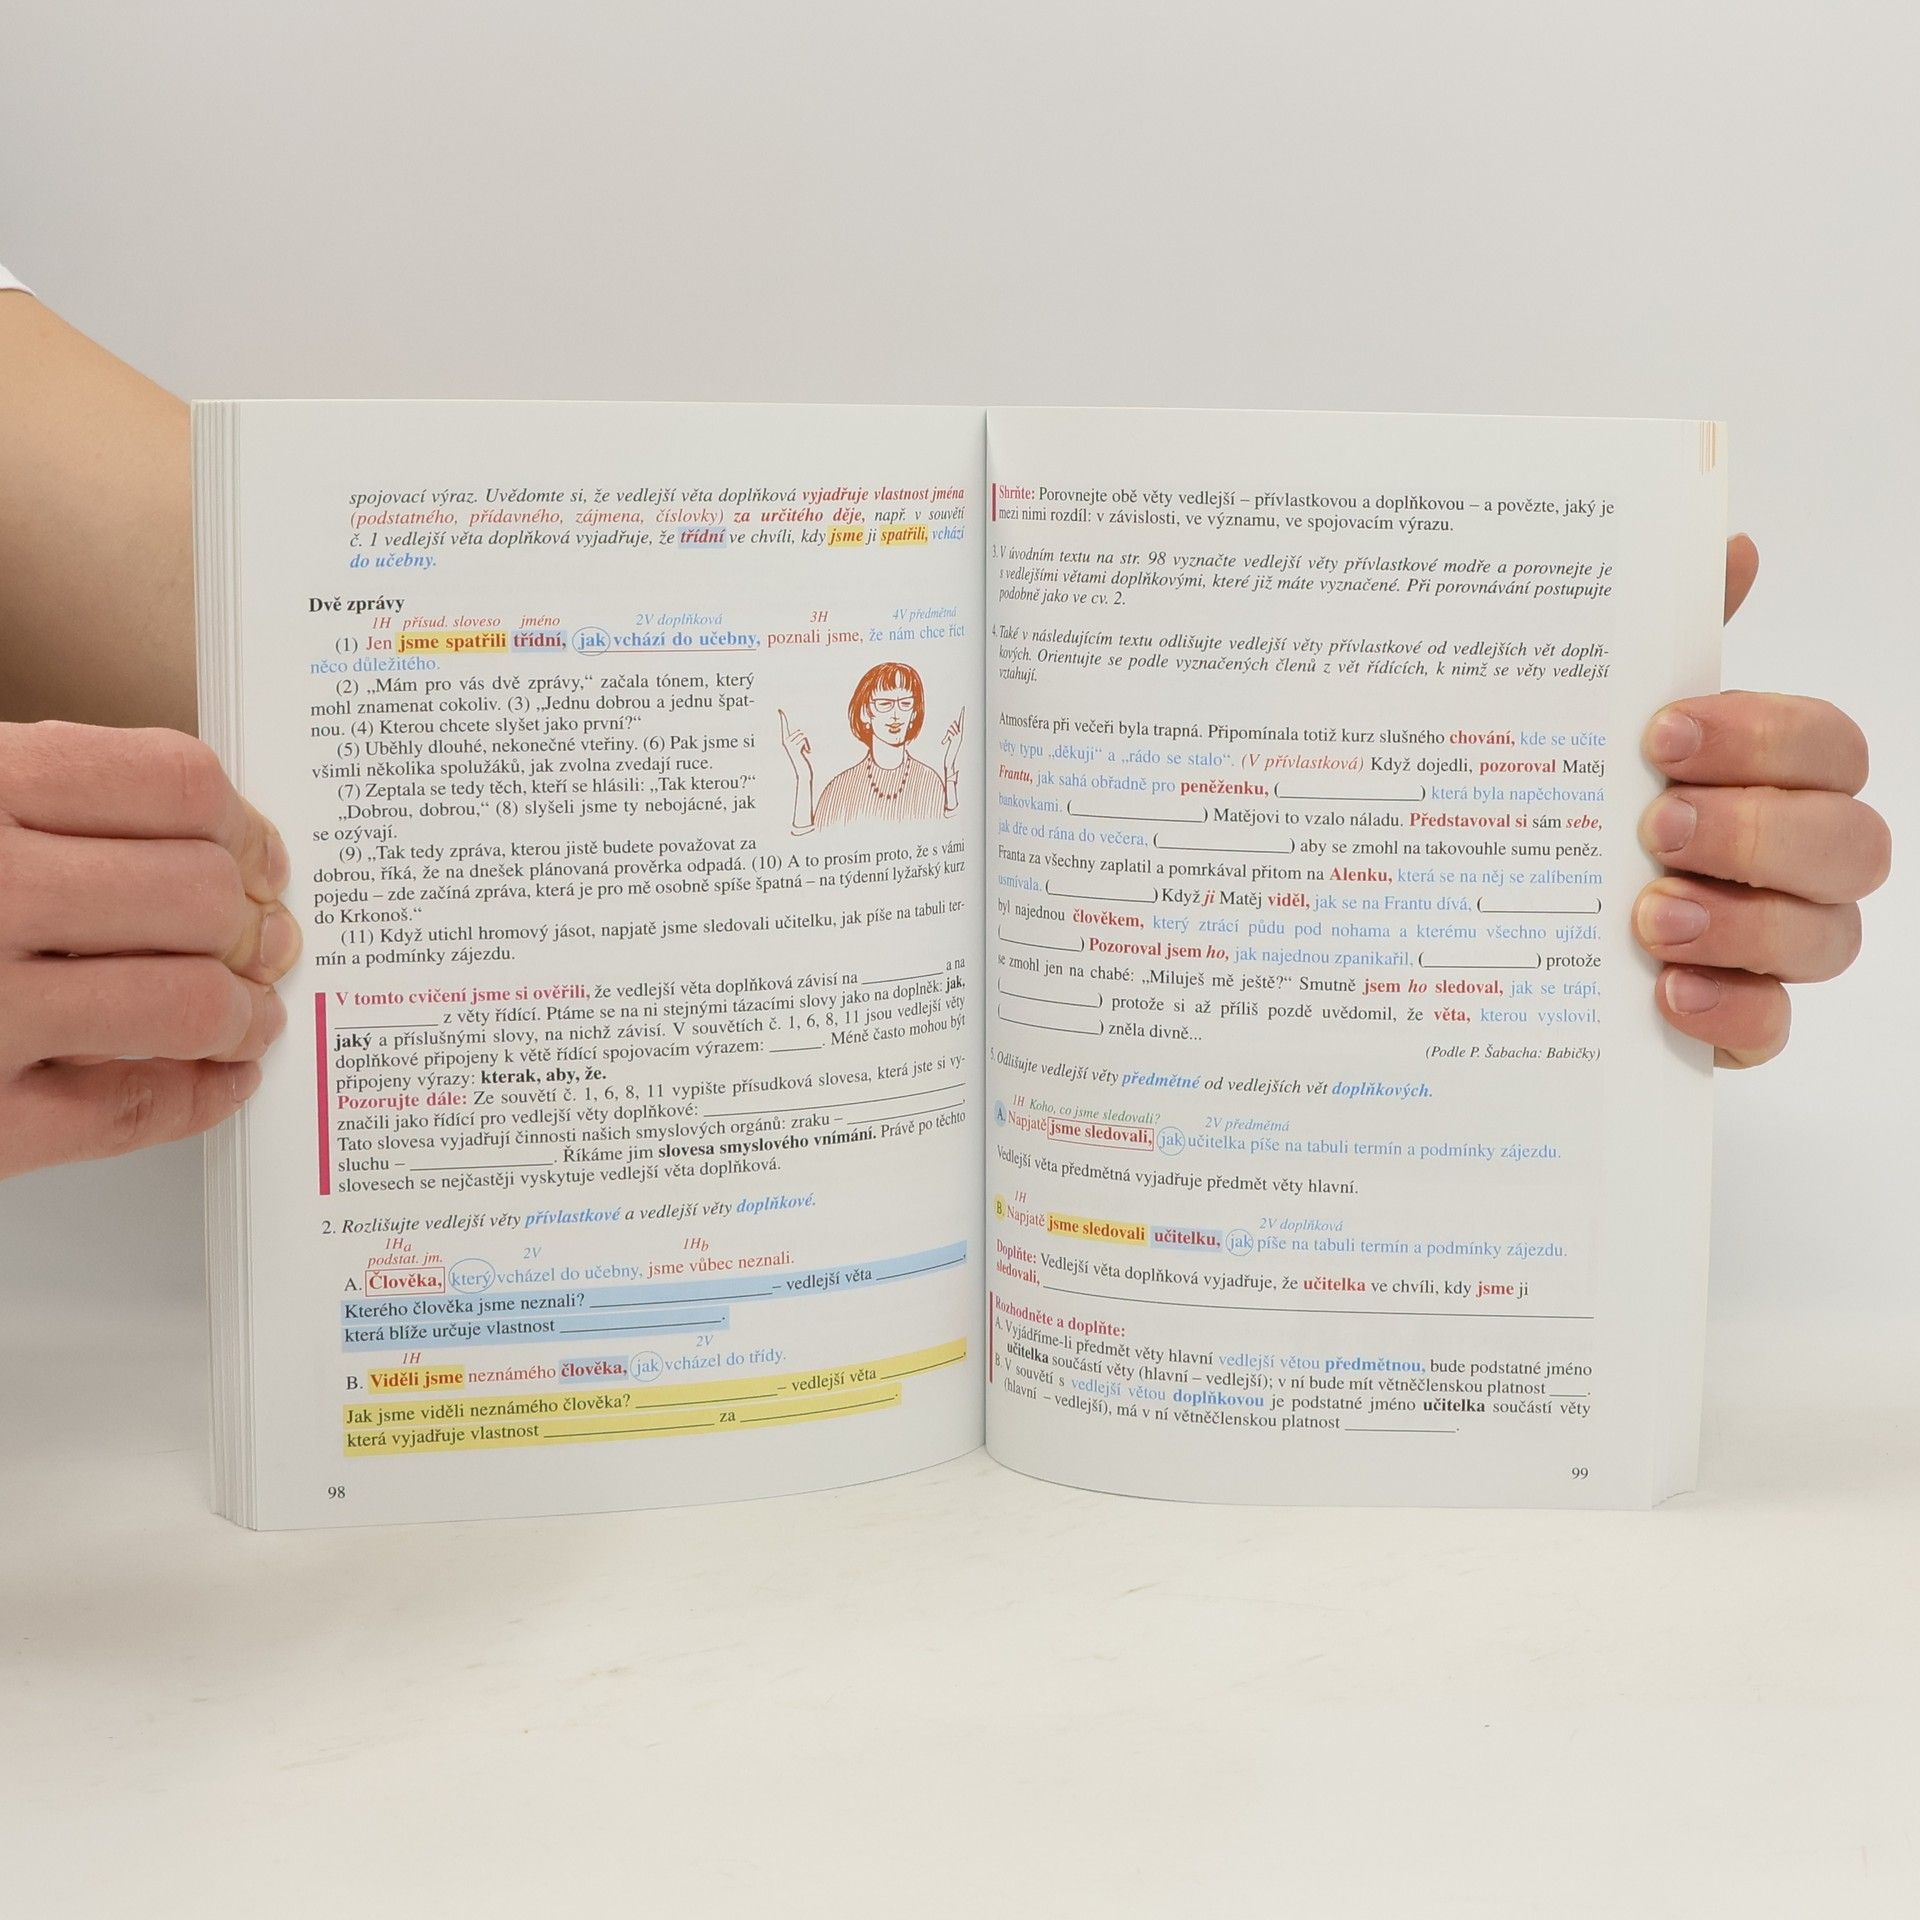 spojovací výraz. Uvědomte si, že vedlejší věta doplňková vyjadřuje vlastnost jména
(podstatného, přídavného, zájmena, číslovky) za určitého děje, např. v souvětí
č. 1 vedlejší věta doplňková vyjadřuje, že třídní ve chvíli, kdy jsme ji spatřili, vchází
do učebny.
Dvě zprávy
1H přísud. sloveso jméno 2V doplňková 3H 4V předmětná
(1) Jen jsme spatřili třídní, jak vchází do učebny, poznali jsme, že nám chce říct
něco důležitého.
(2) „Mám pro vás dvě zprávy,“ začala tónem, který
mohl znamenat cokoliv. (3) „Jednu dobrou a jednu špat-
nou. (4) Kterou chcete slyšet jako první?“
(5) Uběhly dlouhé, nekonečné vteřiny. (6) Pak jsme si
všimli několika spolužáků, jak zvolna zvedají ruce.
(7) Zeptala se tedy těch, kteří se hlásili: „Tak kterou?“
„Dobrou, dobrou,“ (8) slyšeli jsme ty nebojácné, jak
se ozývají.
(9) „Tak tedy zpráva, kterou jistě budete považovat za
dobrou, říká, že na dnešek plánovaná prověrka odpadá. (10) A to prosím proto, že s vámi
pojedu – zde začíná zpráva, která je pro mě osobně spíše špatná – na týdenní lyžařský kurz
do Krkonoš.“
(11) Když utichl hromový jásot, napjatě jsme sledovali učitelku, jak píše na tabuli ter-
mín a podmínky zájezdu.
V tomto cvičení jsme si ověřili, že vedlejší věta doplňková závisí na __________ a na
____________ z věty řídící. Ptáme se na ni stejnými tázacími slovy jako na doplněk: jak,
jaký a příslušnými slovy, na nichž závisí. V souvětích č. 1, 6, 8, 11 jsou vedlejší věty
doplňkové připojeny k větě řídící spojovacím výrazem: ______. Méně často mohou být
připojeny výrazy: kterak, aby, že.
Pozorujte dále: Ze souvětí č. 1, 6, 8, 11 vypište přísudková slovesa, která jste si vy-
značili jako řídící pro vedlejší věty doplňkové: ______________________________
Tato slovesa vyjadřují činnosti našich smyslových orgánů: zraku – ______________,
sluchu – ________________. Říkáme jim slovesa smyslového vnímání. Právě po těchto
slovesech se nejčastěji vyskytuje vedlejší věta doplňková.
2. Rozlišujte vedlejší věty přívlastkové a vedlejší věty doplňkové.
1Ha 2V 1Hb
podstat. jm.
A. Člověka, který vcházel do učebny, jsme vůbec neznali.
Kterého člověka jsme neznali? ____________________ – vedlejší věta __________,
která blíže určuje vlastnost __________________.
1H 2V
B. Viděli jsme neznámého člověka, jak vcházel do třídy.
Jak jsme viděli neznámého člověka? ________________ – vedlejší věta __________,
která vyjadřuje vlastnost ____________________ za __________________.
98
Shrňte: Porovnejte obě věty vedlejší – přívlastkovou a doplňkovou – a povězte, jaký je
mezi nimi rozdíl: v závislosti, ve významu, ve spojovacím výrazu.
3. V úvodním textu na str. 98 vyznačte vedlejší věty přívlastkové modře a porovnejte je
s vedlejšími větami doplňkovými, které již máte vyznačené. Při porovnávání postupujte
podobně jako ve cv. 2.
4. Také v následujícím textu odlišujte vedlejší věty přívlastkové od vedlejších vět doplň-
kových. Orientujte se podle vyznačených členů z vět řídících, k nimž se věty vedlejší
vztahují.
Atmosféra při večeři byla trapná. Připomínala totiž kurz slušného chování, kde se učíte
věty typu „děkuji“ a „rádo se stalo“. (V přívlastková) Když dojedli, pozoroval Matěj
Frantu, jak sahá obřadně pro peněženku, (________________) která byla napěchovaná
bankovkami. (________________) Matějovi to vzalo náladu. Představoval si sám sebe,
jak dře od rána do večera, (________________) aby se zmohl na takovouhle sumu peněz.
Franta za všechny zaplatil a pomrkával přitom na Alenku, která se na něj se zalíbením
usmívala. (____________) Když ji Matěj viděl, jak se na Frantu dívá, (____________)
byl najednou člověkem, který ztrácí půdu pod nohama a kterému všechno ujíždí.
(__________) Pozoroval jsem ho, jak najednou zpanikařil, (____________) protože
se zmohl jen na chabé: „Miluješ mě ještě?“ Smutně jsem ho sledoval, jak se trápí,
(____________) protože si až příliš pozdě uvědomil, že věta, kterou vyslovil,
(____________) zněla divně...
(Podle P. Šabacha: Babičky)
5. Odlišujte vedlejší věty předmětné od vedlejších vět doplňkových.
1H Koho, co jsme sledovali? 2V předmětná
A. Napjatě jsme sledovali, jak učitelka píše na tabuli termín a podmínky zájezdu.
Vedlejší věta předmětná vyjadřuje předmět věty hlavní.
1H 2V doplňková
B. Napjatě jsme sledovali učitelku, jak píše na tabuli termín a podmínky zájezdu.
Doplňte: Vedlejší věta doplňková vyjadřuje, že učitelka ve chvíli, kdy jsme ji
sledovali, ____________________________________________________________
Rozhodněte a doplňte:
A. Vyjádříme-li předmět věty hlavní vedlejší větou předmětnou, bude podstatné jméno
učitelka součástí věty (hlavní – vedlejší); v ní bude mít větněčlenskou platnost ____.
B. V souvětí s vedlejší větou doplňkovou je podstatné jméno učitelka součástí věty
(hlavní – vedlejší), má v ní větněčlenskou platnost ____________.
99